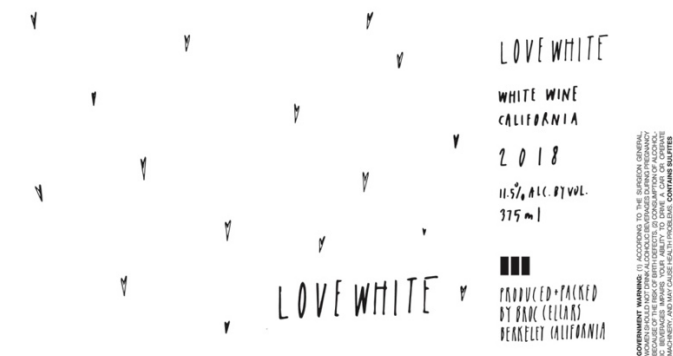 LOVE WHITE
LOVE WHITE
WHITE WINE
CALIFORNIA
2018
11.5% ALC. BY VOL.
375 ml
PRODUCED + PACKED
BY BROC CELLARS
BERKELEY CALIFORNIA
GOVERNMENT WARNING: (1) ACCORDING TO THE SURGEON GENERAL,
WOMEN SHOULD NOT DRINK ALCOHOLIC BEVERAGES DURING PREGNANCY
BECAUSE OF THE RISK OF BIRTH DEFECTS. (2) CONSUMPTION OF ALCOHOL-
IC BEVERAGES IMPAIRS YOUR ABILITY TO DRIVE A CAR OR OPERATE
MACHINERY, AND MAY CAUSE HEALTH PROBLEMS. CONTAINS SULFITES